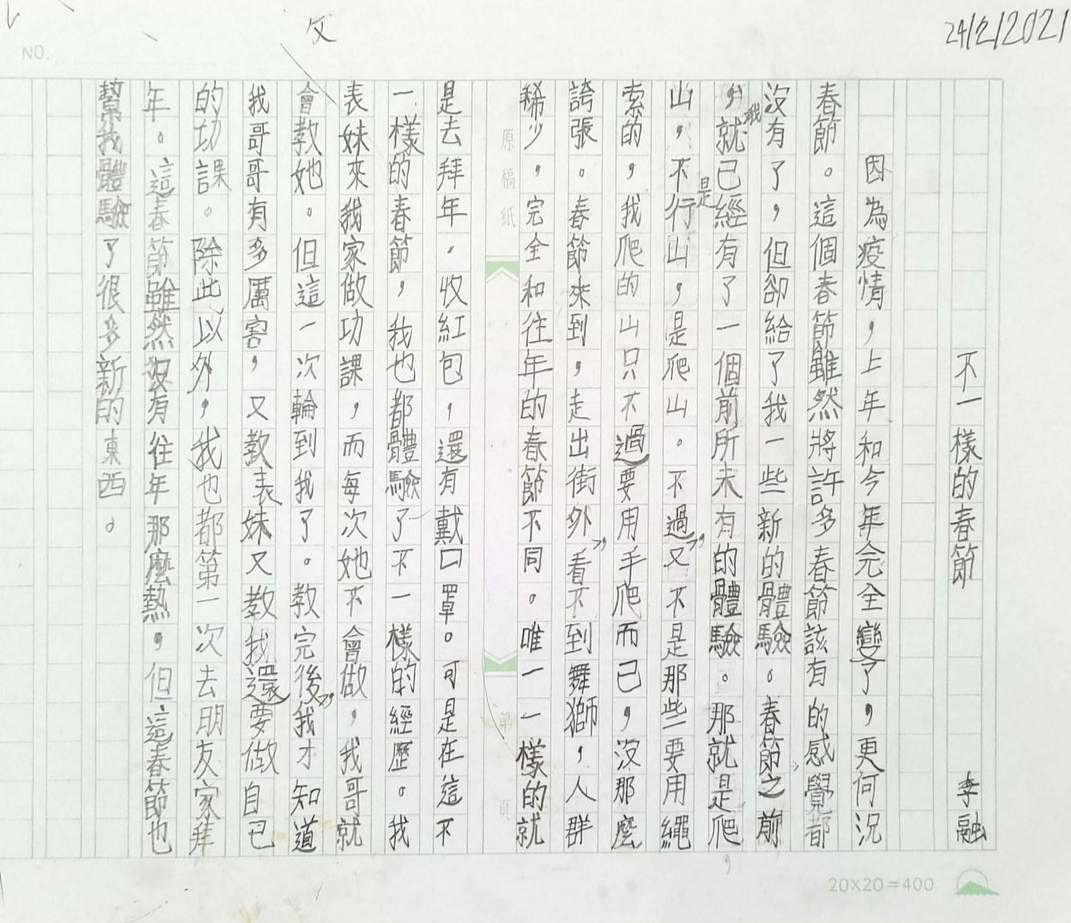 24/2/2021
NO.
文
不一樣的春節 李融
因為疫情，上年和今年完全變了，更何況
春節。這個春節雖然將許多春節該有的感覺都
沒有了，但卻給了我一些新的體驗。春節之前
，我就已經有了一個前所未有的體驗。那就是爬
山，不是行山，是爬山。不過，又不是那些要用繩
索的，我爬的山只不過要用手爬而已，沒那麼
誇張。春節來到，走出街外，看不到舞獅，人群
稀少，完全和往年的春節不同。唯一一樣的就
原稿紙
第 頁
是去拜年。收紅包，還有戴口罩。可是在這不
一樣的春節，我也都體驗了不一樣的經歷。我
表妹來我家做功課，而每次她不會做，我哥就
會教她。但這一次輪到我了。教完後，我才知道
我哥哥有多厲害，又教表妹又教我還要做自己
的功課。除此以外，我也都第一次去朋友家拜
年。這春節雖然沒有往年那麼熱，但這春節也
幫我體驗了很多新的東西。
20×20=400